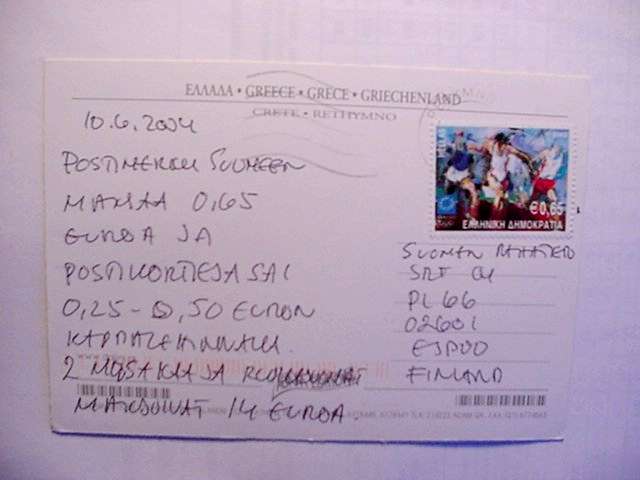 ΕΛΛΑΔΑ • GREECE • GRECE • GRIECHENLAND
CRETE • RETHYMNO
10.6.2004
POSTIMERKKI SUOMEEN
MAKSAA 0,65
EUROA JA
POSTIKORTTEJA SAI
0,25 - 0,50 EURON
KAPPALEHINNALLA
2 MUSAKAA JA
MAKSOIVAT 14 EUROA.
€0,65
ΕΛΛΗΝΙΚΗ ΔΗΜΟΚΡΑΤΙΑ
SUOMEN
PL 66
02601
ESPOO
FINLAND